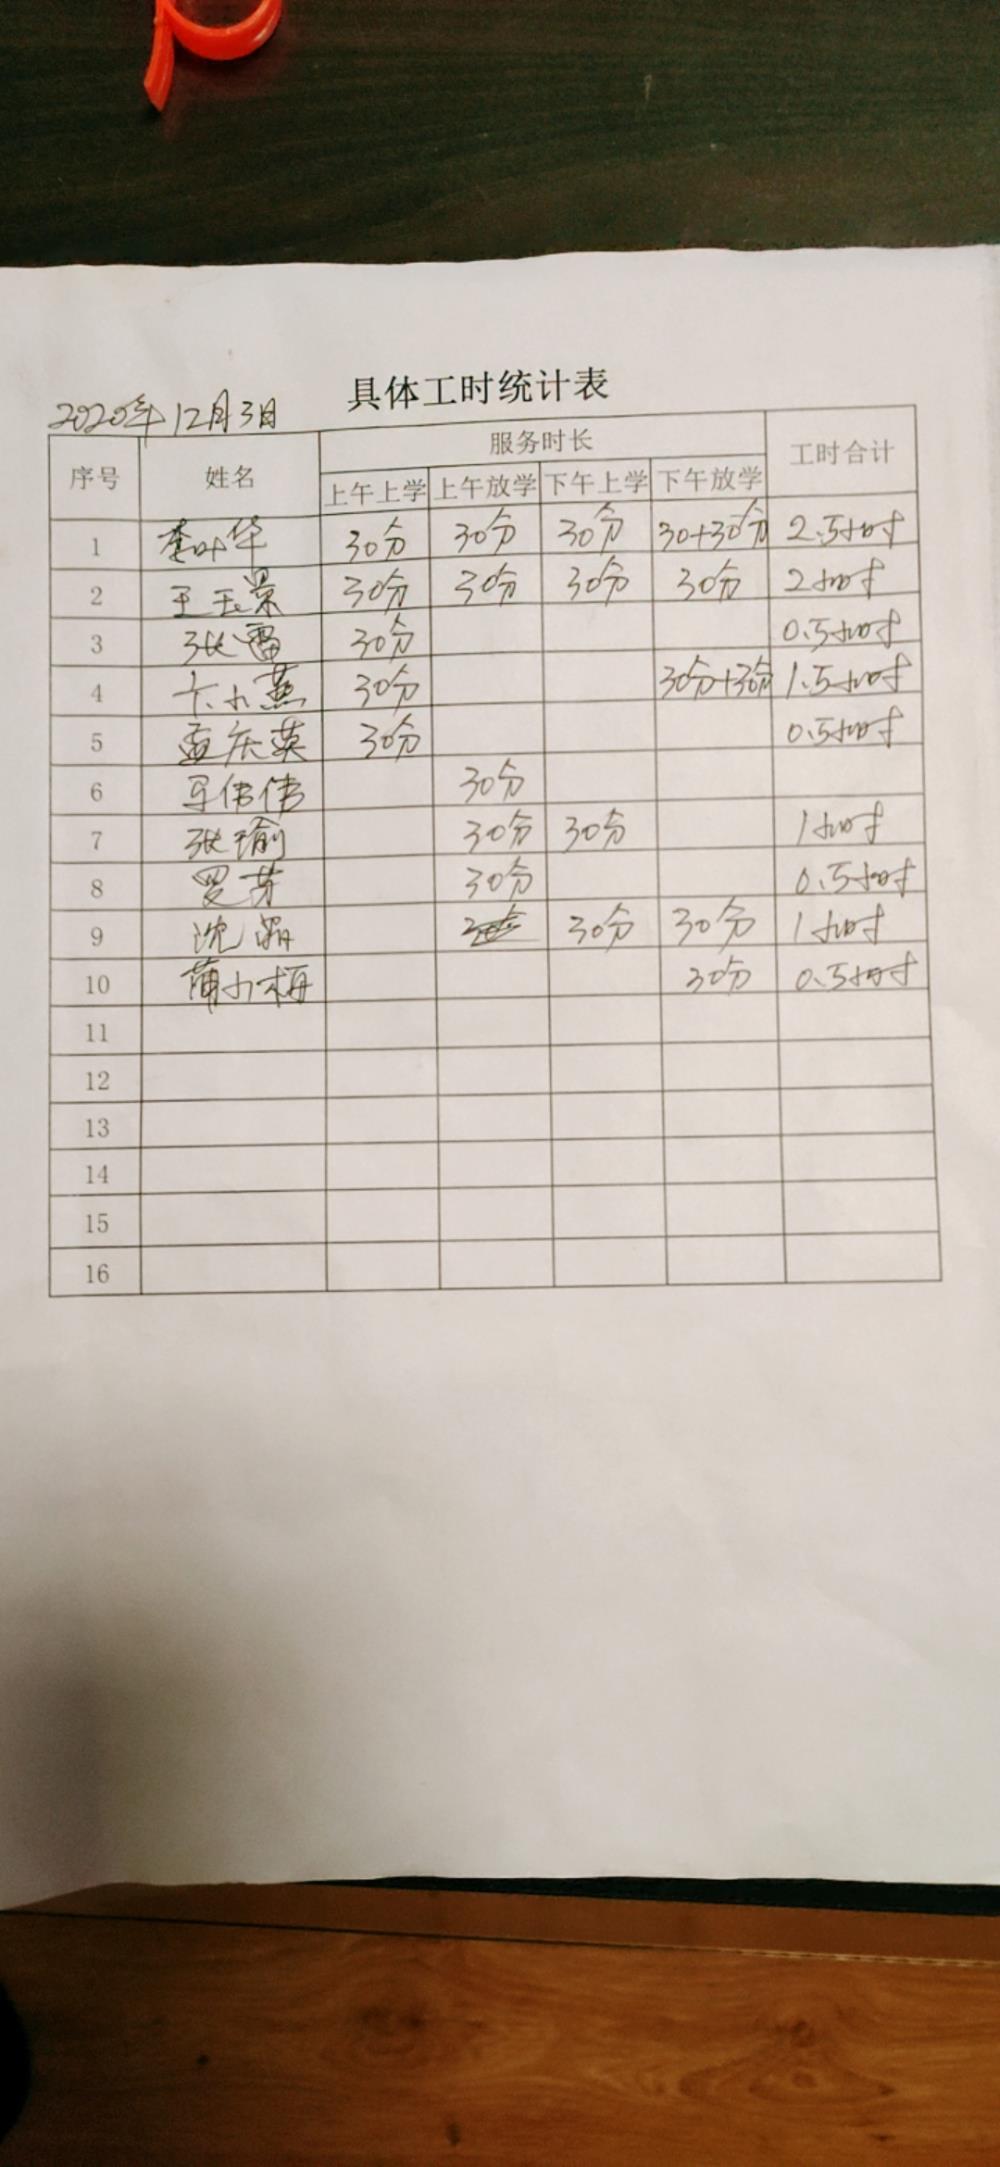 具体工时统计表
2020年12月3日
序号 姓名 服务时长 工时合计
上午上学 上午放学 下午上学 下午放学
1 李叶华 30分 30分 30分 30+30分 2.5小时
2 王玉景 30分 30分 30分 30分 2小时
3 张雷 30分 0.5小时
4 卞小燕 30分 30分+30分 1.5小时
5 孟庆英 30分 0.5小时
6 马伟伟 30分
7 张瑜 30分 30分 1小时
8 罗芳 30分 0.5小时
9 沈 30分 30分 1小时
10 蒲小梅 30分 0.5小时
11
12
13
14
15
16